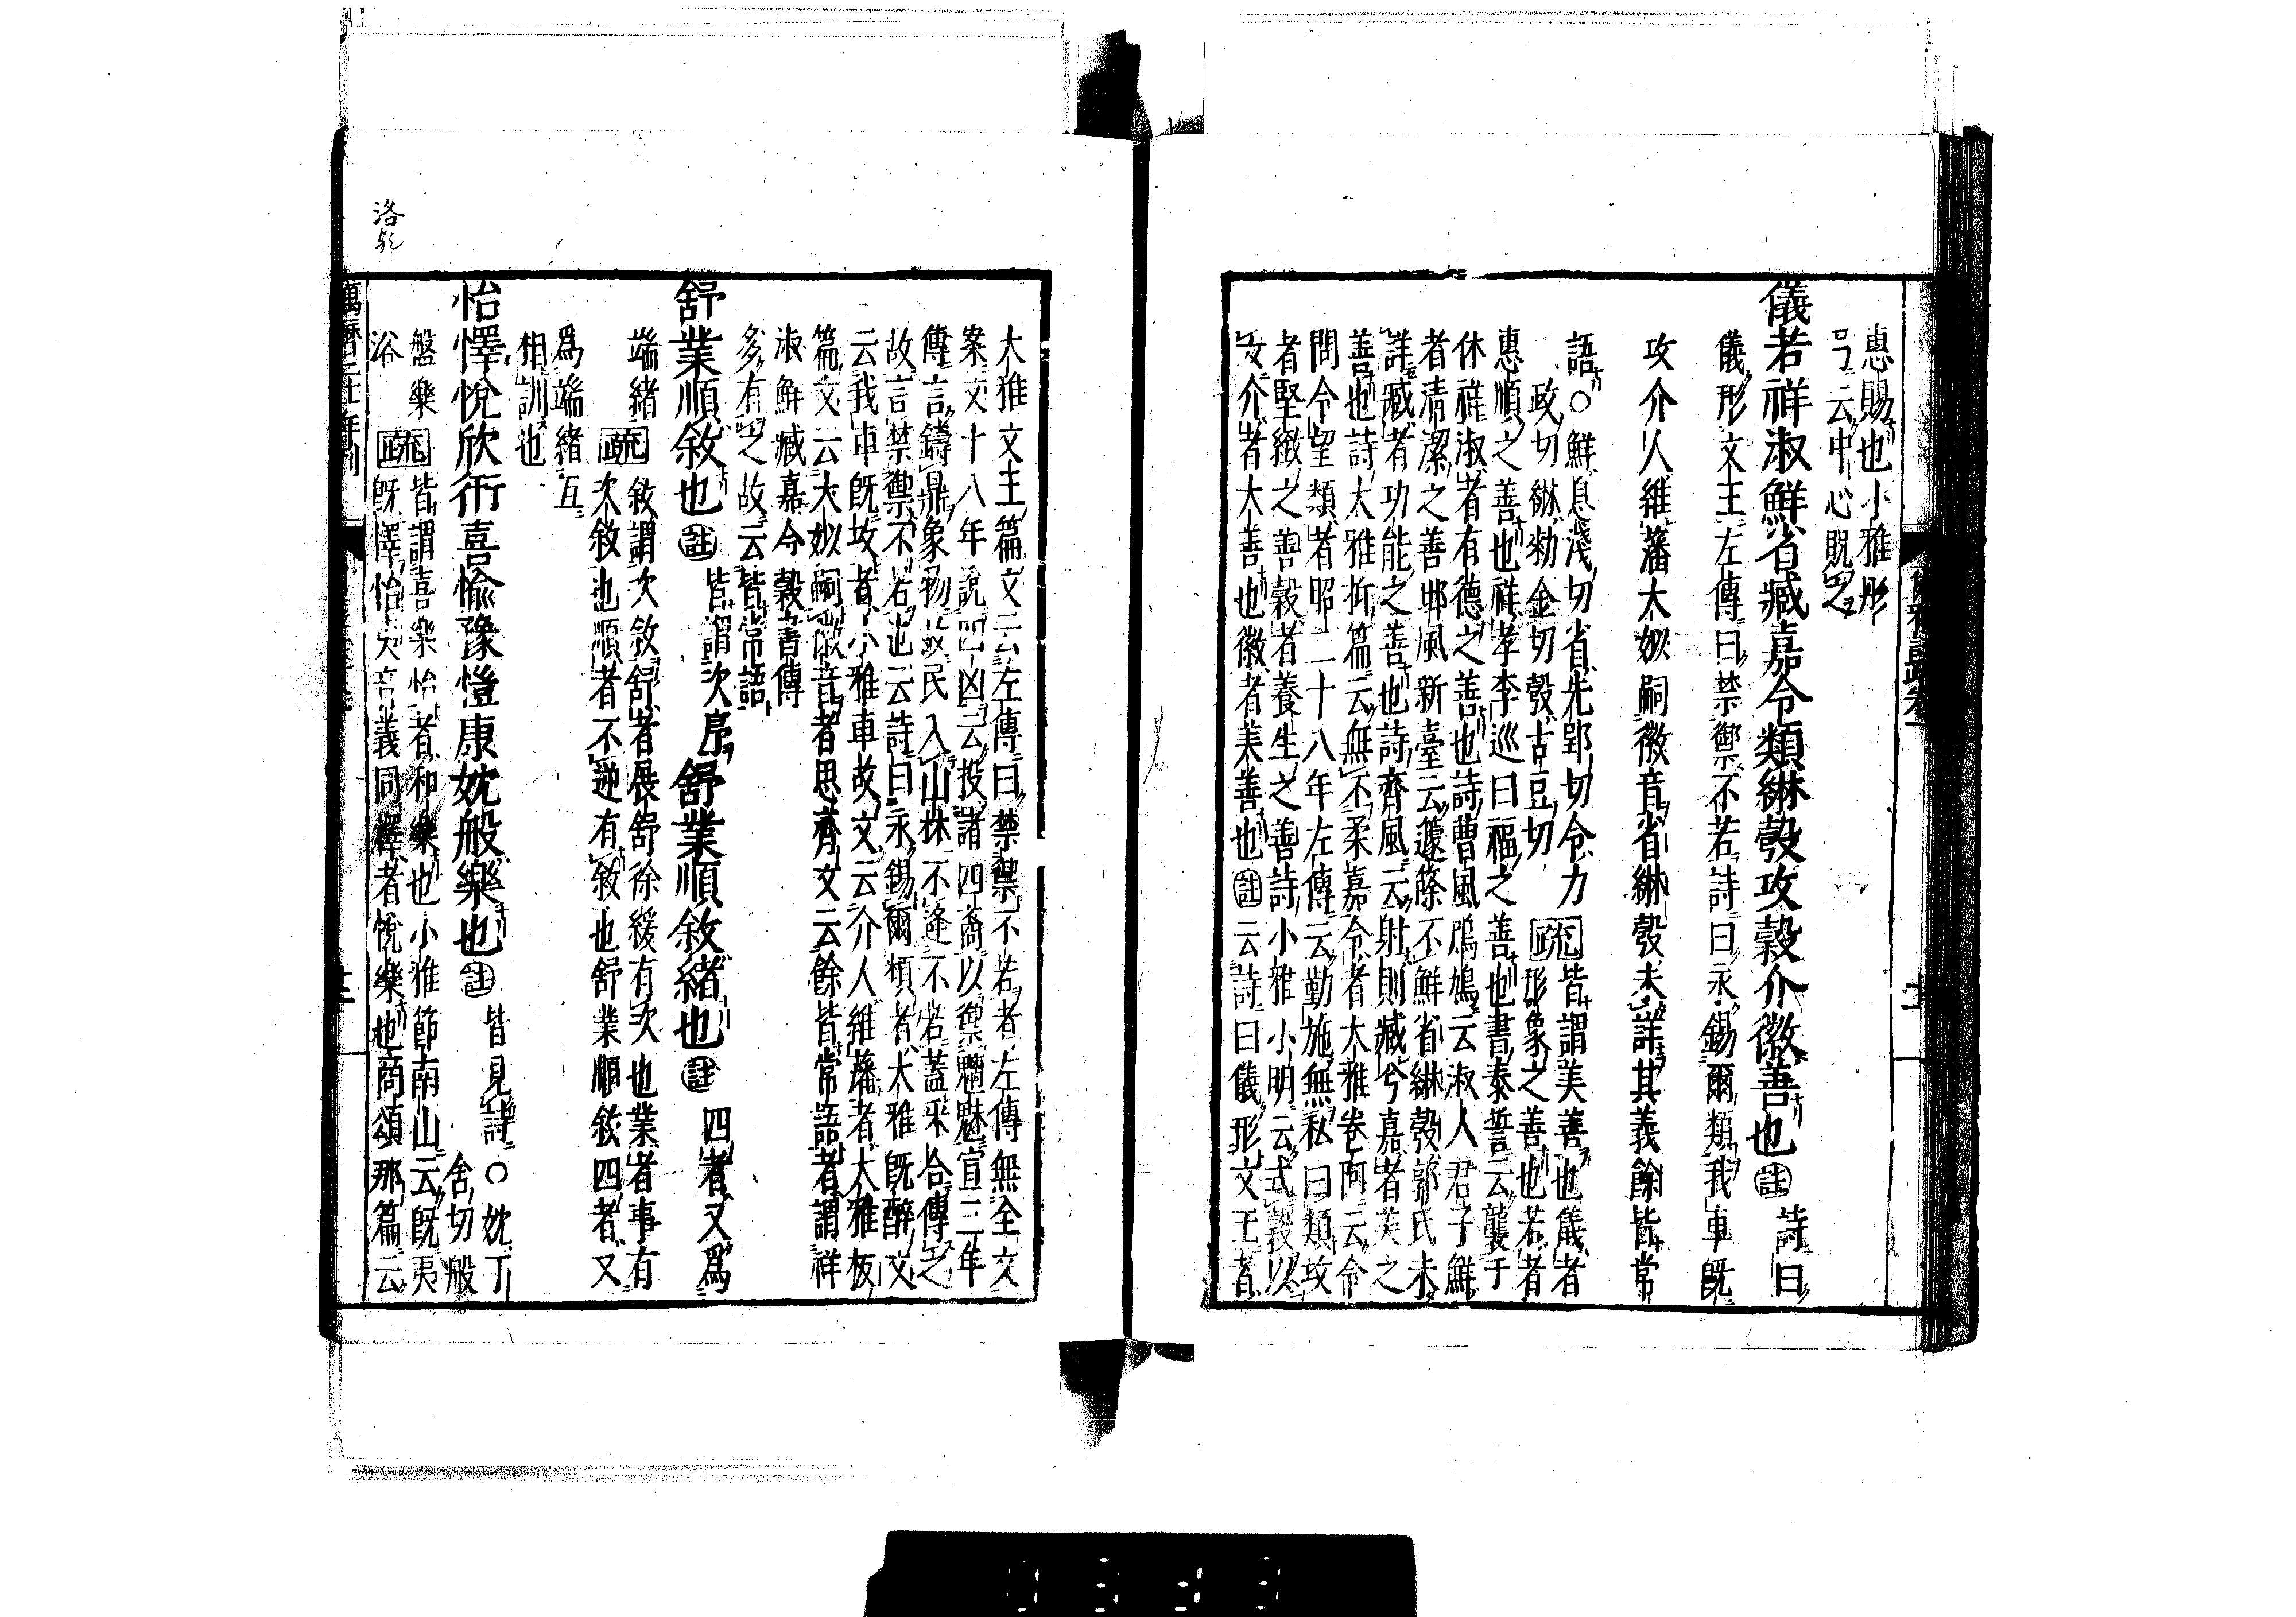 惠賜也小雅彤
弓云中心貺之
儀若祥淑鮮省臧嘉令類綝彀攻穀介徽善也註詩曰
儀形文王左傳曰禁禦不若詩曰永錫爾類我車既
攻介人維藩大姒嗣徽音省綝彀未詳其義餘皆常
語○鮮息淺切省先郢切令力
政切綝勑金切彀古豆切
疏皆謂美善也儀者
形象之善也若者
惠順之善也祥孝李巡曰福之善也書泰誓云襲于
休祥淑者有德之善也詩曹風鳲鳩云淑人君子鮮
者清潔之善邶風新臺云籧篨不鮮省綝彀郭氏未
詳臧者功能之善也詩齊風云射則臧兮嘉者美之
善也詩大雅抑篇云無不柔嘉令者大雅卷阿云令
問令望類者昭二十八年左傳云勤施無私曰類攻
者堅緻之善穀者養生之善詩小雅小明云式穀以
女介者大善也徽者美善也註云詩曰儀形文王者
大雅文王篇文云左傳曰禁禦不若者左傳無全文
案文十八年說四凶云投諸四裔以禦魑魅宣三年
傳言鑄鼎象物故民入山林不逢不若蓋采合傳之
故言禁禦不若也云詩曰永錫爾類者大雅既醉文
云我車既攻者小雅車攻文云介人維藩者大雅板
篇文云大姒嗣徽音者思齊文云餘皆常語者謂祥
淑鮮臧嘉令穀書傳
多有之故云皆常語
舒業順敘也註皆謂次序舒業順敘緒也註四者又爲
端緒疏敘謂次敘舒者展舒徐緩有次也業者事有
次敘也順者不逆有敘也舒業順敘四者又
爲端緒互
相訓也
怡懌悅欣衎喜愉豫愷康妉般樂也註皆見詩○妉丁
含切般
盤樂
洛疏皆謂喜樂怡者和樂也小雅節南山云既夷
既懌怡夷音義同懌者悅樂也商頌那篇云